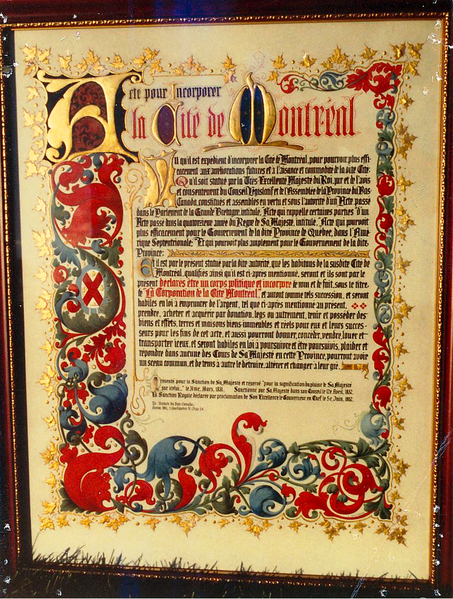 Acte pour Incorporer
la Cité de Montréal
Vu qu'il est expédient d'incorporer la Cité de Montréal, pour pourvoir plus effi-
cacement aux améliorations futures et à l'aisance et commodité de la dite Cité:
Qu'il soit statué par la Très-Excellente Majesté du Roi, par et de l'avis
et consentement du Conseil Législatif et de l'Assemblée de la Province du Bas
Canada, constitués et assemblés en vertu et sous l'autorité d'un Acte passé
dans le Parlement de la Grande Bretagne, intitulé, "Acte qui rappelle certaines parties d'un
Acte passé dans la quatorzième année du Règne de Sa Majesté, intitulé, "Acte qui pourvoit
plus efficacement pour le Gouvernement de la dite Province de Québec, dans l'Amé-
rique Septentrionale, "Et qui pourvoit plus amplement pour le Gouvernement de la dite
Province:
Et il est par le présent statué par la dite autorité, que les habitans de la susdite Cité de
Montréal, qualifiés ainsi qu'il est ci-après mentionné, seront et ils sont par le
présent déclarés être un corps politique et incorporé de nom et le fait, sous le titre
de "La Corporation de la Cité Montreal", et auront comme tels succession, et seront
habiles en loi à emprunter de l'argent, tel que ci-après mentionné au présent,
prendre, acheter et acquérir par donation, legs ou autrement, tenir et posséder des
biens et effets, terres et maisons biens immeubles et réels pour eux et leurs succes-
seurs pour les fins de cet acte, et aussi pourront donner, concéder, vendre, louer et
transporter iceux, et seront habiles en loi à poursuivre et être poursuivis, plaider et
répondre dans aucune des Cours de Sa Majesté en cette Province, pourront avoir
un sceau commun, et de tems à autre le détruire, altérer et changer à leur gré.
Présenté pour la Sanction de Sa Majesté et réservé "pour la signification du plaisir de Sa Majesté
sur icelui," le 31me. Mars, 1831. Sanctionné par Sa Majesté dans son Conseil le 12 Avril, 1832.
La Sanction Royale déclarée par proclamation de Son Excellence le Gouverneur en Chef le 5e Juin, 1832.